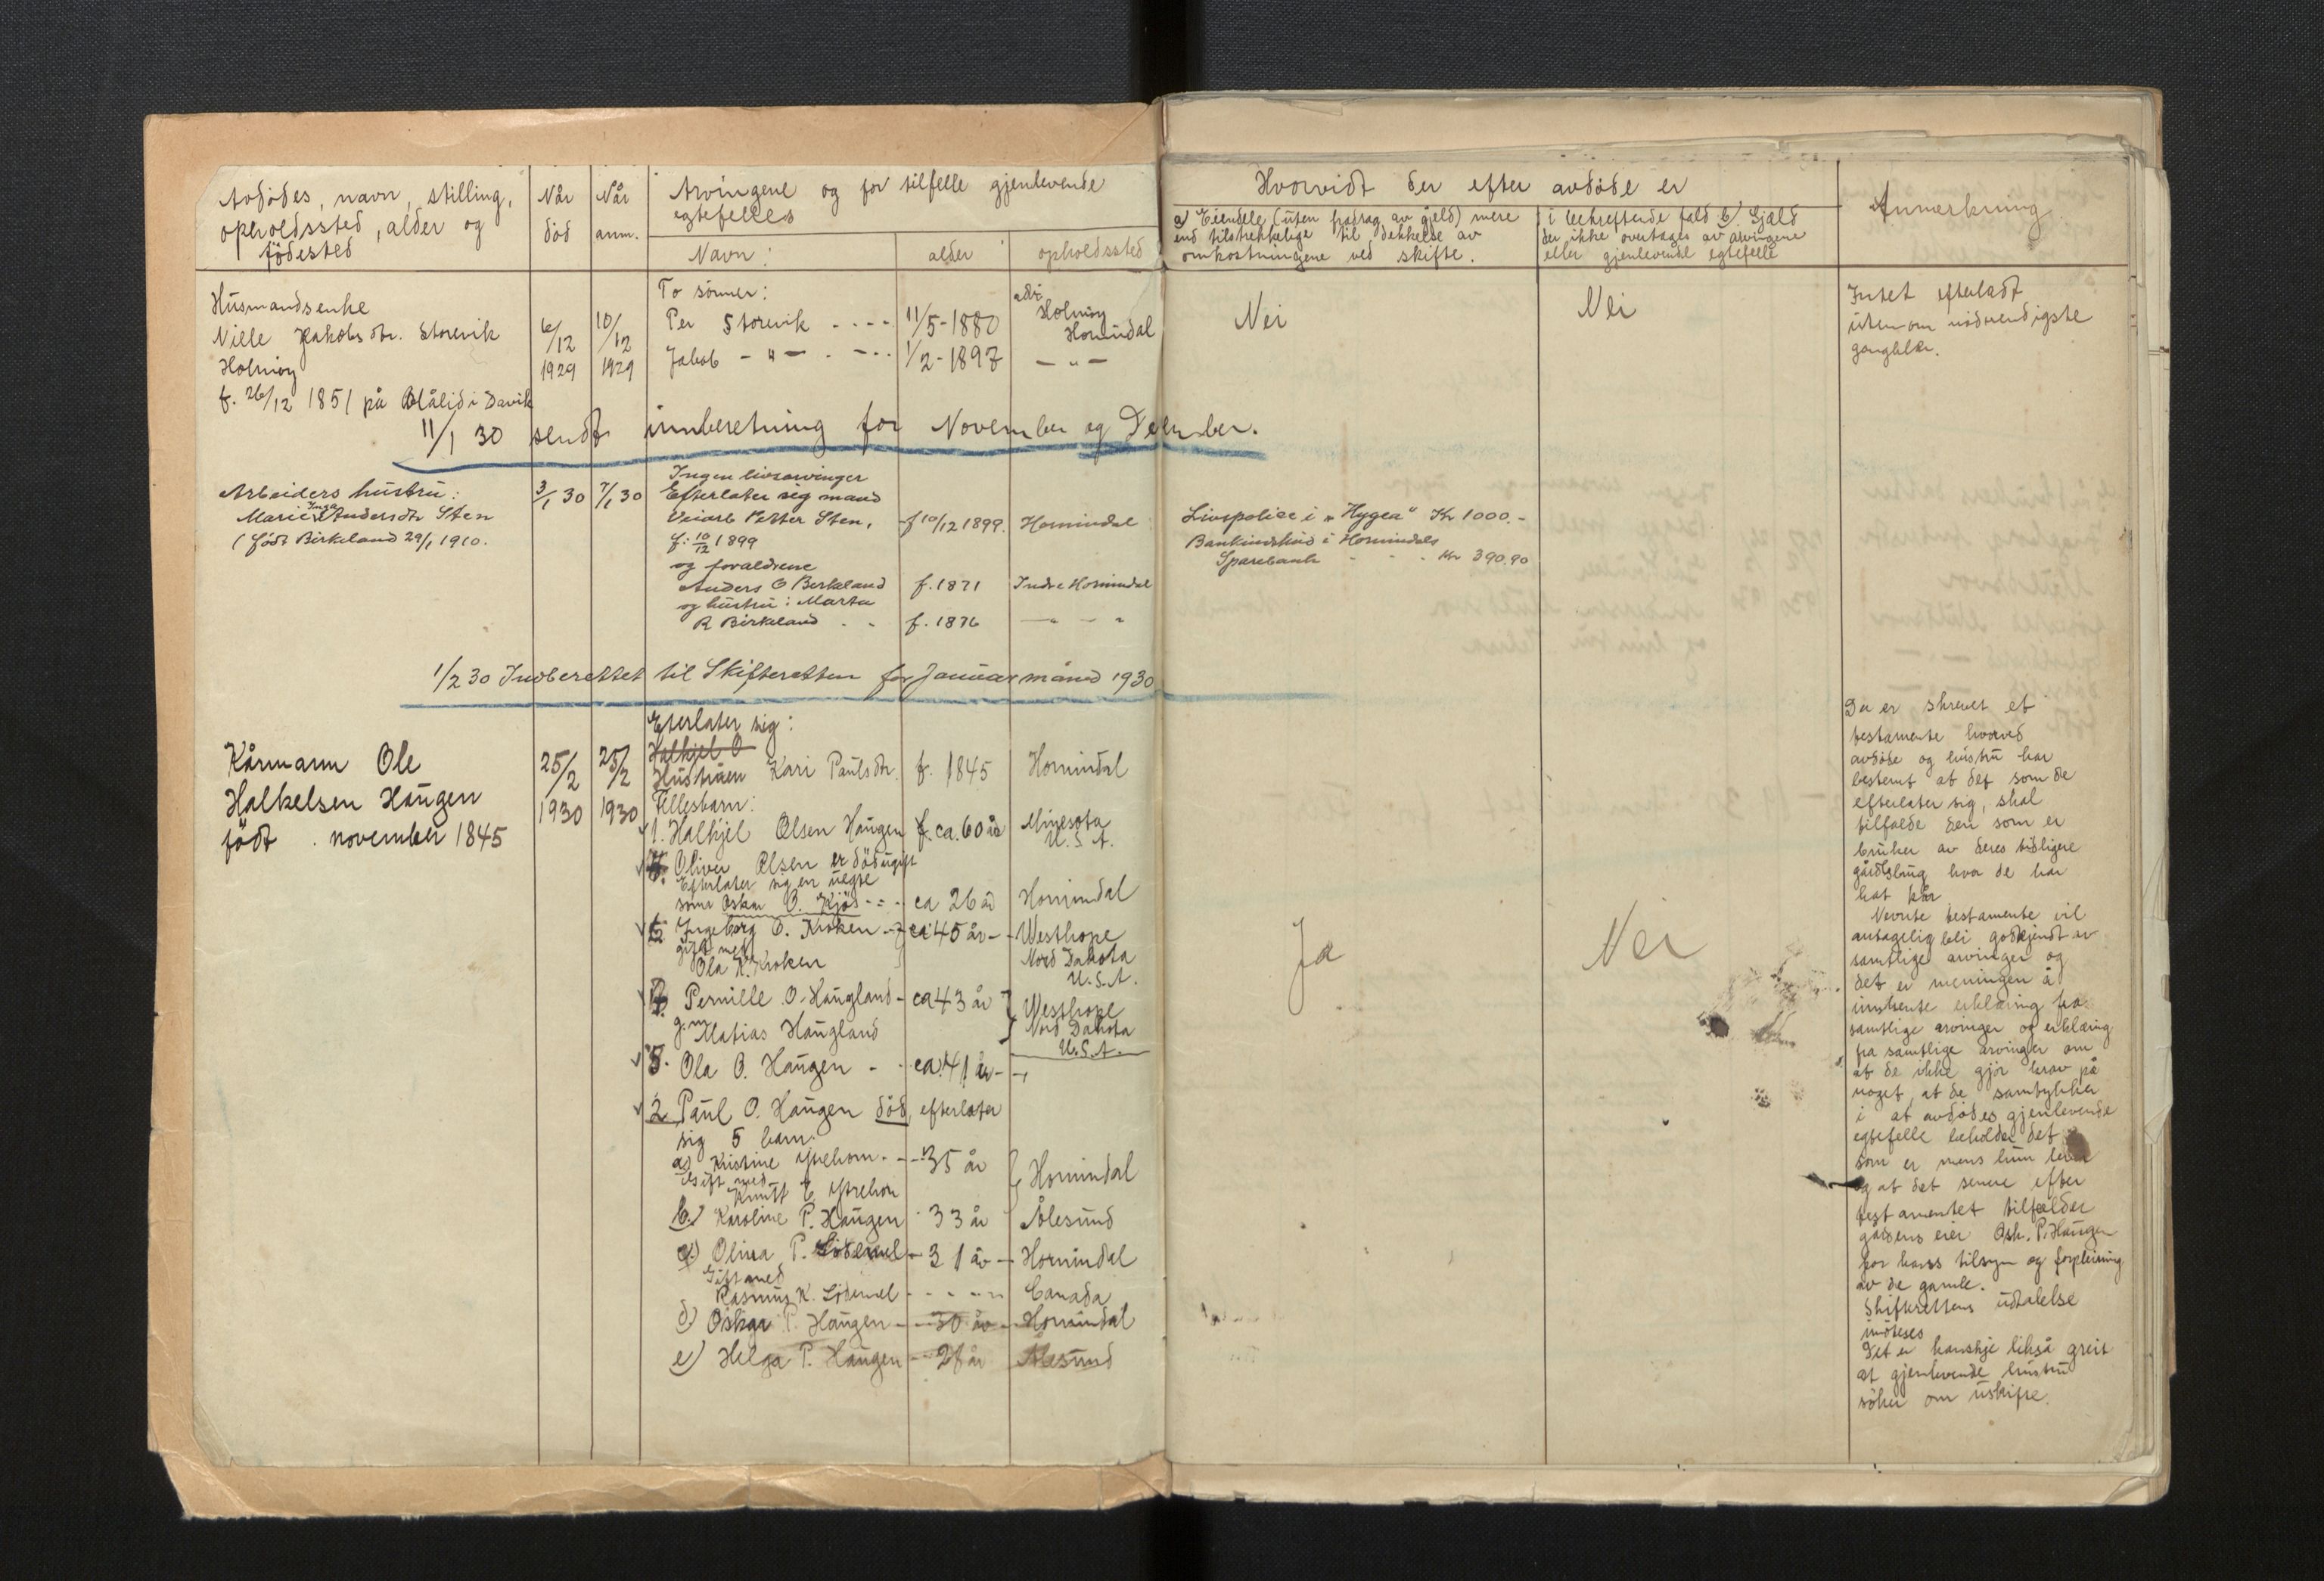 Avdødes, navn, stilling,
opholdssted, alder og
fødested
Når
død
Når
anm.
Arvingene og for tilfelle gjenlevende
egtefelles
Navn:
alder
opholdssted
Hvorvidt der efter avdøde er
a) Eiendele (uten fradrag av gjeld) mere
end tilstrekkelige til dekkelse av
omkostningene ved skifte.
i bekreftende fald b) Gjæld
der ikke overtages av arvingene
eller gjenlevende egtefelle
Anmerkning
Husmandsenke
Nille Jakobsdtr. Storevik
Holmøy
f. 26/12 1851 på Blålid i Davik
6/12
1929
10/12
1929
To sønner:
Per Storevik - - - - 11/5-1880
adr.
Holmøy
Hornindal
Jakob - " - . - - - 1/2-1897 - " -
Nei
Nei
Intet efterladt
utenom nødvendigste
gangklær.
11/1 30 sendt innberetning for November og Desember.
Arbeiders hustru:
Marie Inga Andersdtr Sten
(født Birkeland 29/1 1910.
3/1 30
7/1 30
Ingen livsarvinger
Efterlater sig mand
Veiarb Petter Sten, f 10/12 1899. Hornindal
f. 10/12 1899
og forældrene
Anders O Berkeland f. 1871 Indre Hornindal
og hustru: Marta
R Birkeland . - f. 1876 - " - "
Livspolice i "Hygea" Kr 1000.-
Bankindskud i Hornindals
Sparebank - - - Kr 390.90
1/2 30 Indberettet til Skifteretten for Januar månd 1930
Kårmann Ole
Halkelsen Haugen
født . november 1845
25/2
1930
25/2
1930
Eterlater sig:
Halkjel O
Hustruen Kari Paulsdtr. f. 1845 Hornindal
Fellesbarn:
1. Halkjel Olsen Haugen f. ca. 60 år Minesota
U.S.A.
Oliver Olsen er død ugift
Efterlater sig en uegte
sønn Oskar O. Kjøs - - - ca 26 år Hornindal
Ingeborg O. Kroken - ca 45 år - - Westhope
gift med
Ola K. Kroken
Nord Dakota
U.S.A.
Pernille O. Haugland - ca 43 år Westhope
g. m. Matias Haugland
Nord Dakota
U.S.A.
5. Ola O. Haugen - - ca. 41 år - - "
2. Paul O. Haugen død, efterlater
sig 5 barn:
a) Kristine Ytrehorn. - - 35 år Hornindal
Gift med
Knut E Ytrehorn
b.) Karoline P. Haugen 33 år Ålesund
c) Olina P. Lødemel - 31 år - Hornindal
Gift med
Rasmus K. Lødemel - - - - - Canada
d) Oskar P. Haugen - - 30 år - Hornindal
e) Helga P. Haugen - 28 år Ålesund
Ja
Nei
Der er skrevet et
testamente hvorved
avdøde og hustru har
bestemt at det som de
efterlater sig, skal
tilfalde den som er
bruker av deres tidligere
gårdsbrug hvor de har
hat kår
Nevnte testamente vil
antagelig bli godkjendt av
samtlige arvinger og
det er meningen å
innhente erklæring fra
samtlige arvinger og erklæring
fra samtlige arvinger om
at de ikke gjør krav på
noget, at de samtykker
i at avdødes gjenlevende
egtefelle beholder det
som er mens hun lever
og at det senere efter
testamentet tilfælder
gårdens eier Osk. P. Haugen
for hans tilsyn og forpleining
av de gamle.
Skifterettens uttalelse
imøteses
Det er kanskje likså greit
at gjenlevende hustru
søker om uskifte.